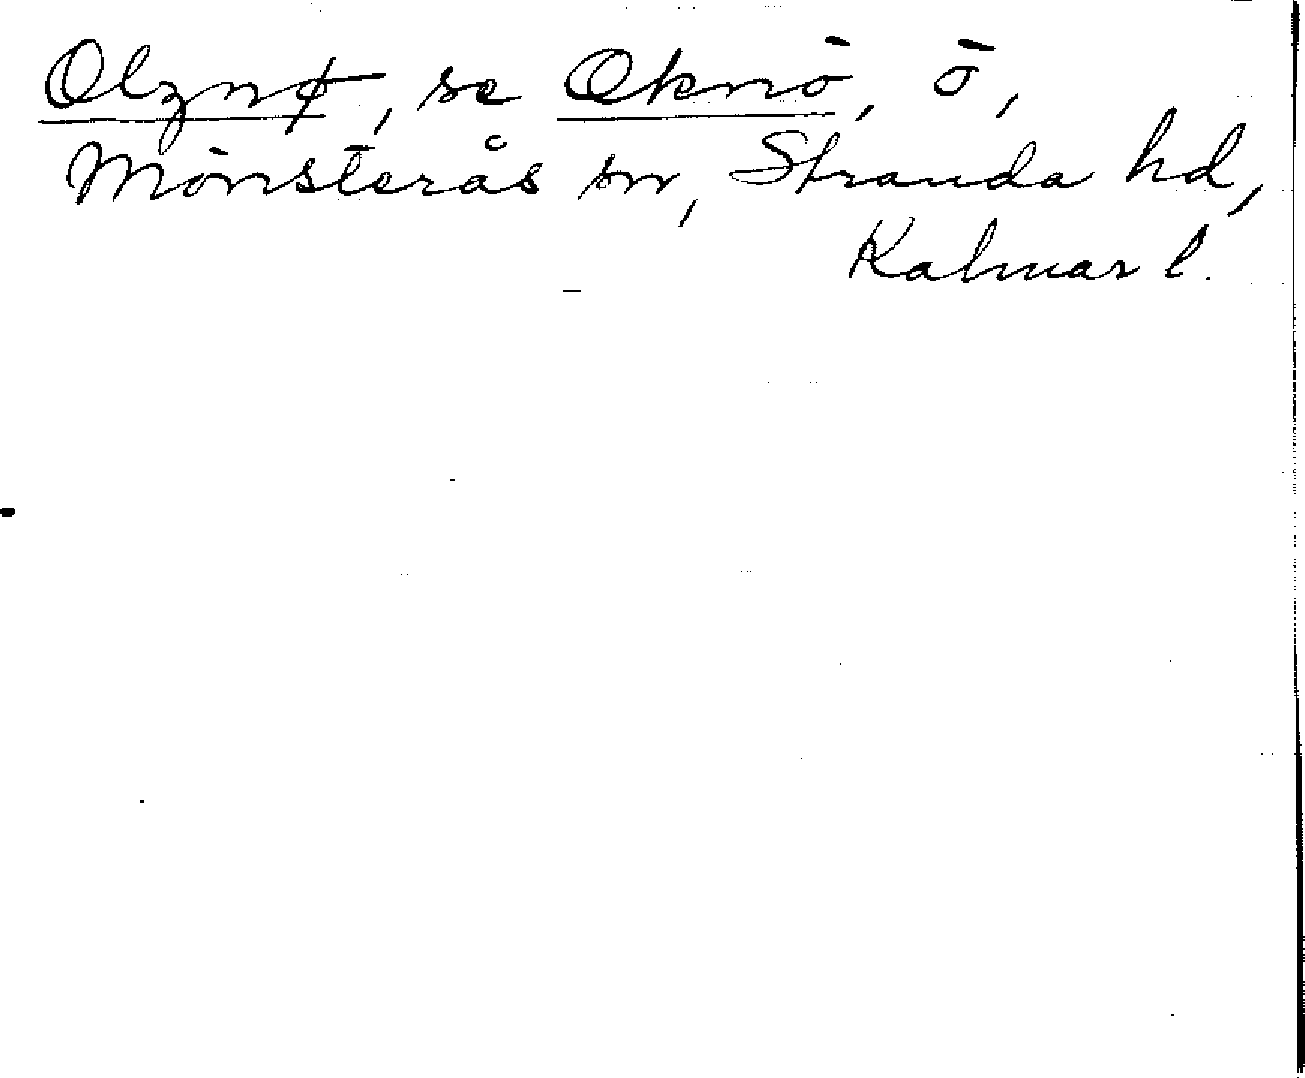 Olznø, se Oknö, ö,
Mönsterås sn, Stranda hd,
Kalmar l.